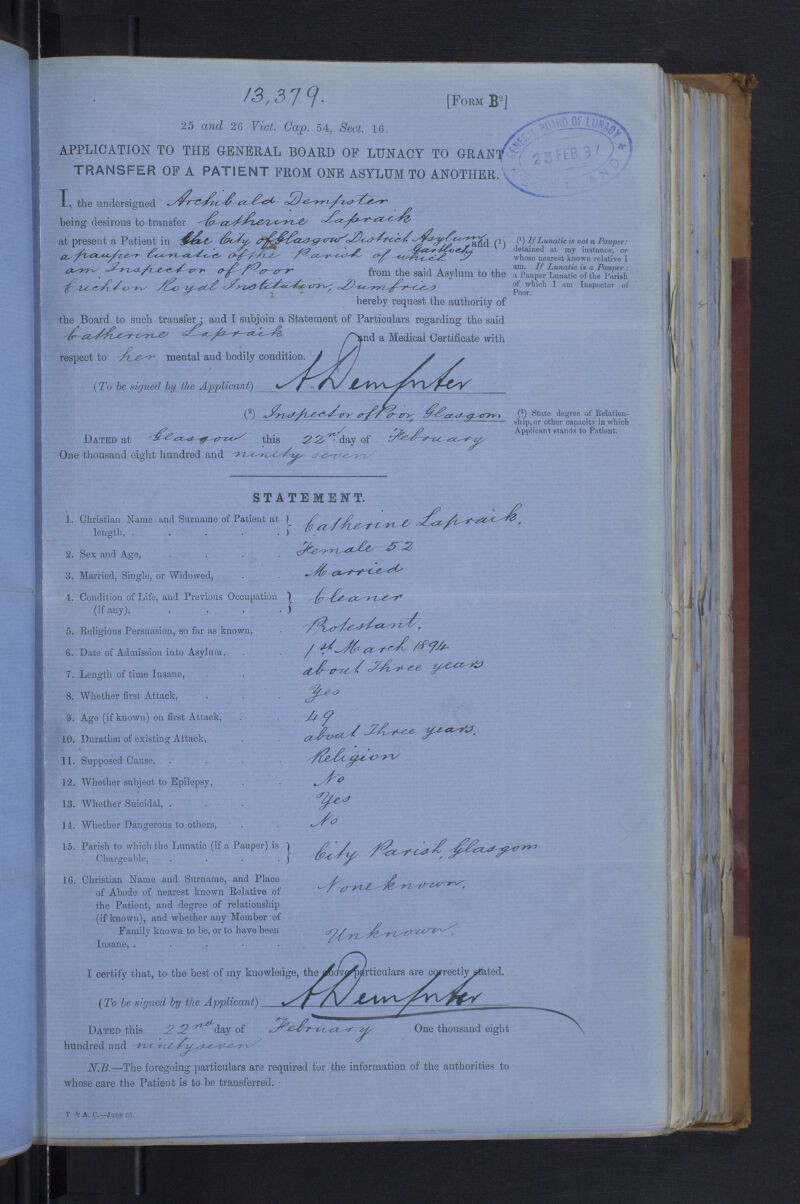 13,379.
[FORM B²]
25 and 26 Vict. Cap. 54, Sect. 16.
GENERAL BOARD OF LUNACY
23 FEB 97
APPLICATION TO THE GENERAL BOARD OF LUNACY TO GRANT
TRANSFER OF A PATIENT FROM ONE ASYLUM TO ANOTHER.
I, the undersigned Archibald Dempster
being desirous to transfer Catherine Lapraik
at present a Patient in the City of Glasgow District Asylum Gartloch and (¹)
a pauper lunatic of the Parish of which
am Inspector of Poor from the said Asylum to the
Crichton Royal Institution, Dumfries
hereby request the authority of
the Board to such transfer; and I subjoin a Statement of Particulars regarding the said
Catherine Lapraik and a Medical Certificate with
respect to her mental and bodily condition.
(¹) If Lunatic is not a Pauper:
detained at my instance, or
whose nearest known relative I
am. If Lunatic is a Pauper:
a Pauper Lunatic of the Parish
of which I am Inspector of
Poor.
(To be signed by the Applicant) A. Dempster
(²) Inspector of Poor, Glasgow
(²) State degree of Relation-
ship, or other capacity in which
Applicant stands to Patient.
DATED at Glasgow this 22nd day of February
One thousand eight hundred and ninety seven
STATEMENT.
1. Christian Name and Surname of Patient at length, . Catherine Lapraik.
2. Sex and Age, Female 52
3. Married, Single, or Widowed, Married
4. Condition of Life, and Previous Occupation (if any), Cleaner
5. Religious Persuasion, so far as known, Protestant.
6. Date of Admission into Asylum, 1st March 1894
7. Length of time Insane, about Three years
8. Whether first Attack, Yes
9. Age (if known) on first Attack, 49
10. Duration of existing Attack, about Three years.
11. Supposed Cause, Religion
12. Whether subject to Epilepsy, No
13. Whether Suicidal, Yes
14. Whether Dangerous to others, No
15. Parish to which the Lunatic (if a Pauper) is Chargeable, City Parish, Glasgow
16. Christian Name and Surname, and Place
of Abode of nearest known Relative of
the Patient, and degree of relationship
(if known), and whether any Member of
Family known to be, or to have been
Insane, .
None known.
Unknown.
I certify that, to the best of my knowledge, the above particulars are correctly stated.
(To be signed by the Applicant) A Dempster
DATED this 22nd day of February One thousand eight
hundred and ninety seven
N.B.—The foregoing particulars are required for the information of the authorities to
whose care the Patient is to be transferred.
T & A. C.—June 95.